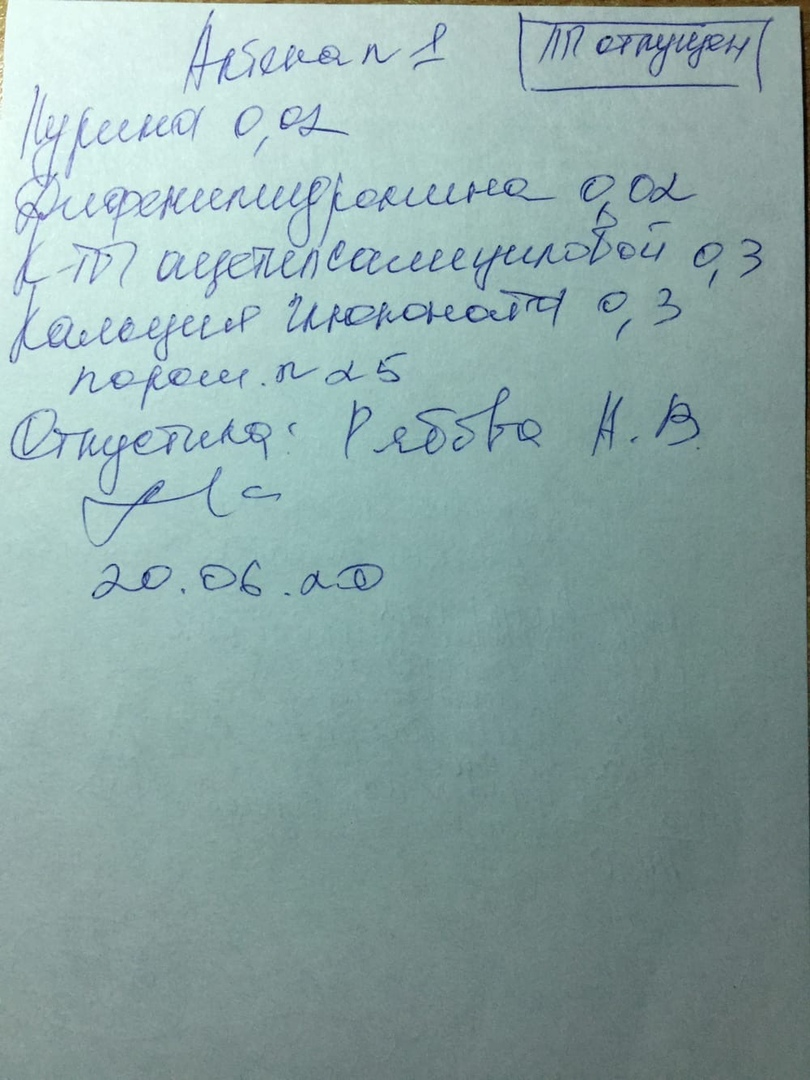 Аптека № 1
ЛП отпущен
Пурина 0,02
Дифенилгидрамина 0,02
К-ты ацетилсалициловой 0,3
Кальция глюконата 0,3
порош. № 25
Отпустила: Рябова Н. В.
20.06.20